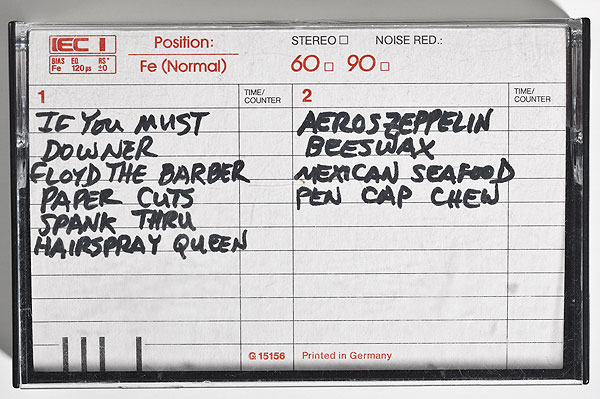 IEC I
BIAS EQ RS*
Fe 120 µs ±0
Position:
Fe (Normal)
STEREO □ NOISE RED.:
60 □ 90 □
1 TIME/
COUNTER
2 TIME/
COUNTER
IF YOU MUST
DOWNER
FLOYD THE BARBER
PAPER CUTS
SPANK THRU
HAIRSPRAY QUEEN
AEROSZEPPELIN
BEESWAX
MEXICAN SEAFOOD
PEN CAP CHEW
G 15156 Printed in Germany